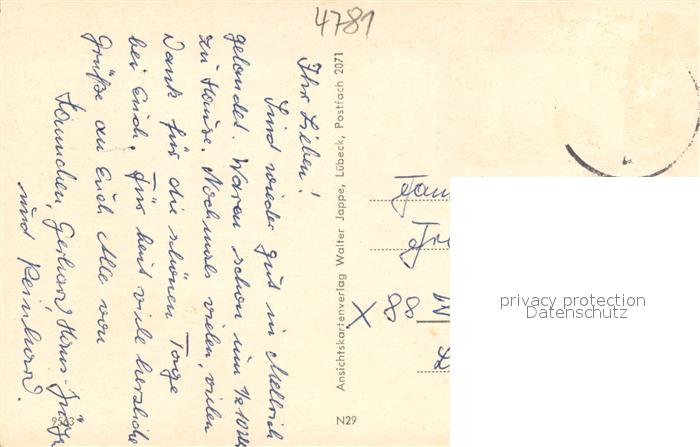 4781
Ihr Lieben!
Sind wieder gut in Mellrich
gelandet. Waren schon um ½10 Uh
zu Hause. Nochmals vielen, vielen
Dank für die schönen Tage
bei Euch. Für heut viele herzliche
Grüße an Euch Alle von
Hännchen, Gerhard, Hans-Jürge
und Reinhard.
9563
Ansichtskartenverlag Walter Jappe, Lübeck, Postfach 2071
N29
Fam
X 88
privacy protection
Datenschutz